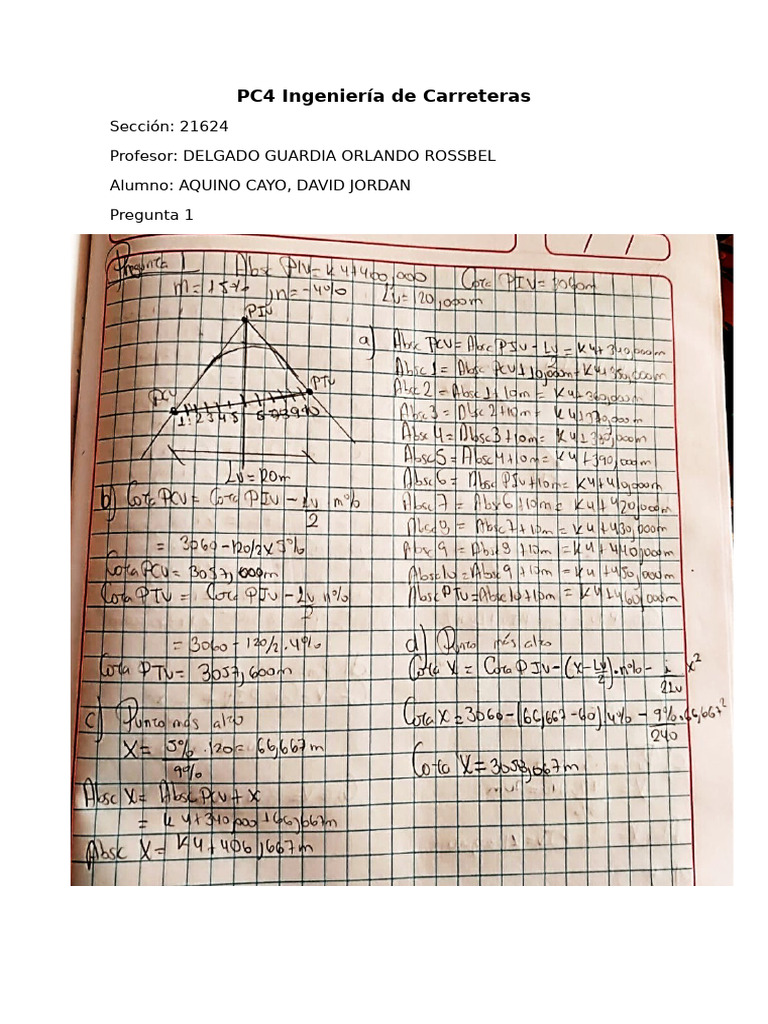 PC4 Ingeniería de Carreteras
Sección: 21624
Profesor: DELGADO GUARDIA ORLANDO ROSSBEL
Alumno: AQUINO CAYO, DAVID JORDAN
Pregunta 1
Pregunta 1 Absc PIV = K4+400,000 Cota PIV = 3060m
m = 15% , n = -4% Lv = 120,000m
PIV
PCV
PTV
1 2 3 4 5 6 7 8 9 10
Lv = 120m
a) Absc PCV = Absc PIV - Lv/2 = K4+340,000m
Absc 1 = Absc PCV + 10,000m = K4+350,000m
Absc 2 = Absc 1 + 10m = K4+360,000m
Absc 3 = Absc 2 + 10m = K4+370,000m
Absc 4 = Absc 3 + 10m = K4+380,000m
Absc 5 = Absc 4 + 10m = K4+390,000m
Absc 6 = Absc PIV + 10m = K4+410,000m
Absc 7 = Absc 6 + 10m = K4+420,000m
Absc 8 = Absc 7 + 10m = K4+430,000m
Absc 9 = Absc 8 + 10m = K4+440,000m
Absc 10 = Absc 9 + 10m = K4+450,000m
Absc PTV = Absc 10 + 10m = K4+460,000m
b) Cota PCV = Cota PIV - Lv/2 m%
= 3060 - 120/2 x 5%
Cota PCV = 3057,000m
Cota PTV = Cota PIV - Lv/2 n%
= 3060 - 120/2 . 4%
Cota PTV = 3057,600m
c) Punto más alto
X = 5%/9% . 120 = 66,667m
Absc X = Absc PCV + X
= K4+340,000 + 66,667m
Absc X = K4+406,667m
d) Punto más alto
Cota X = Cota PIV - (X - Lv/2) . n% - i/2Lv X²
Cota X = 3060 - (66,667 - 60) 4% - 9%/240 . 66,667²
Cota X = 3058,067m